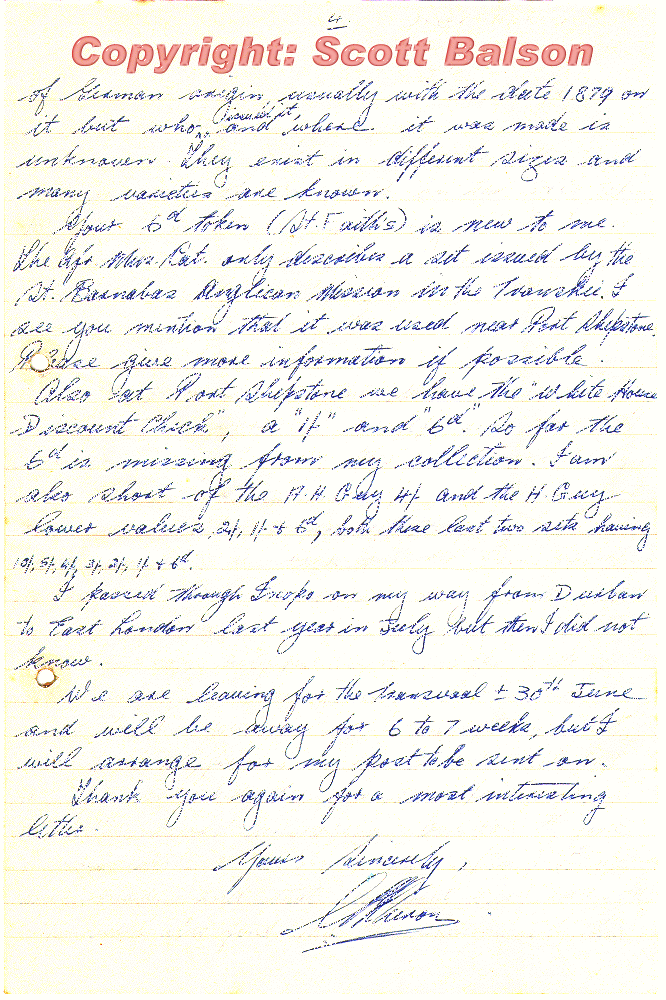 4
Copyright: Scott Balson
of German origin, usually with the date 1879 on
it but who issued it and where it was made is
unknown. They exist in different sizes and
many varieties are known.
Your 6d token (St. Faith's) is new to me.
The Afr. Mus. Cat. only describes a set issued by the
St. Barnabas Anglican Mission in the Transkei. I
see you mention that it was used near Port Shepstone.
Please give more information if possible.
Also at Port Shepstone we have the "White House
Discount Check", a "1/-" and "6d". So far the
6d is missing from my collection. I am
also short of the H.H. Guy 4/- and the H. Guy
lower values, 2/-, 1/- & 6d, both these last two sets having
10/-, 5/-, 4/-, 3/-, 2/-, 1/- & 6d.
I passed through Ixopo on my way from Durban
to East London last year in July but then I did not
know.
We are leaving for the Transvaal ± 30th June
and will be away for 6 to 7 weeks, but I
will arrange for my post to be sent on.
Thank you again for a most interesting
letter.
Yours Sincerely,